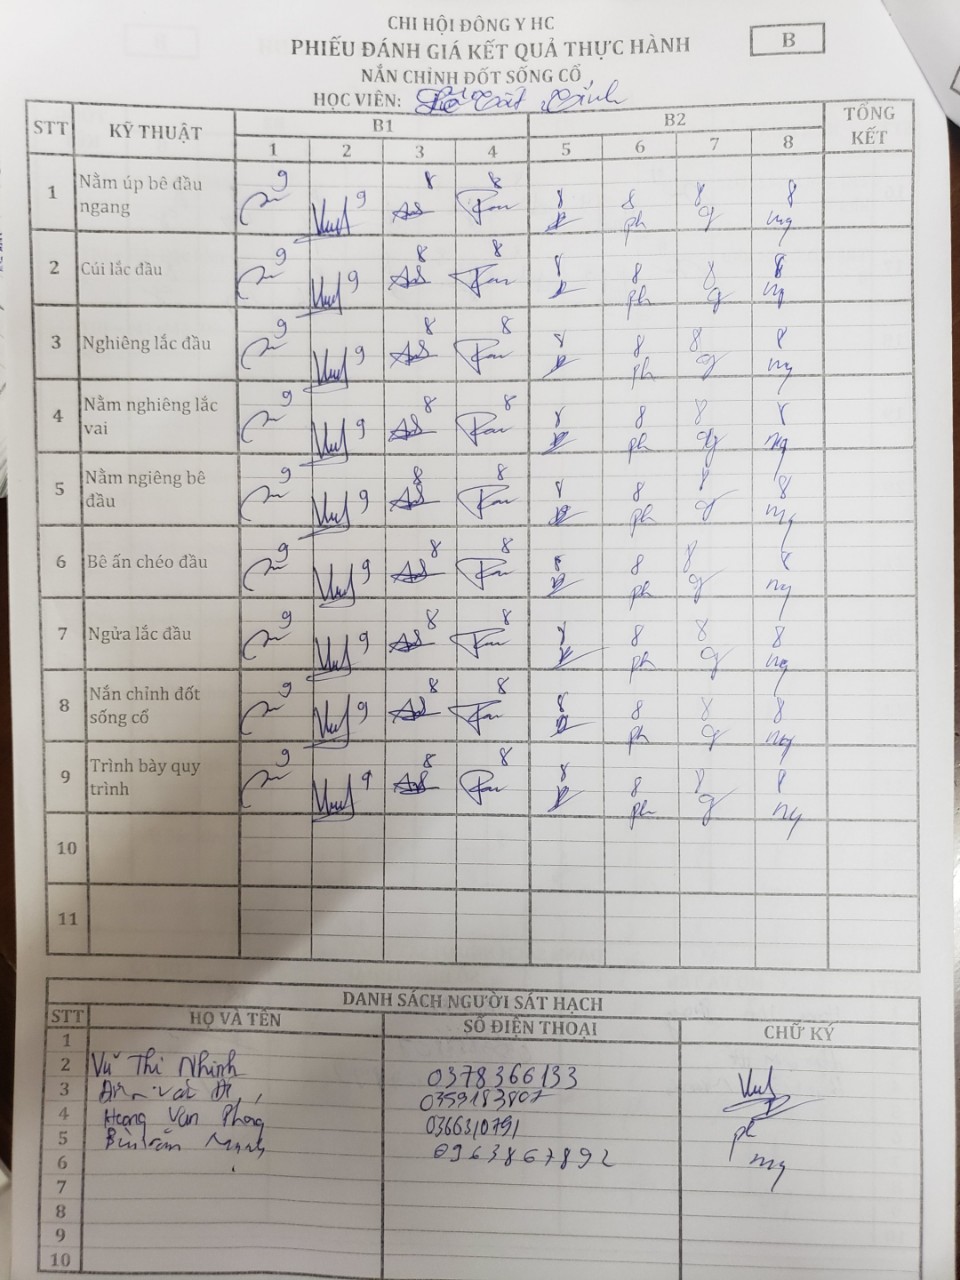 CHI HỘI ĐÔNG Y HC
PHIẾU ĐÁNH GIÁ KẾT QUẢ THỰC HÀNH
B
NẮN CHỈNH ĐỐT SỐNG CỔ
HỌC VIÊN:
STT KỸ THUẬT B1 B2 TỔNG KẾT
1 2 3 4 5 6 7 8
1 Nằm úp bê đầu ngang 9 9 8 8 8 8 8 8
ph g mg
2 Cúi lắc đầu 9 9 8 8 8 8 8 8
ph g mg
3 Nghiêng lắc đầu 9 9 8 8 8 8 8 8
ph g mg
4 Nằm nghiêng lắc vai 9 9 8 8 8 8 8 8
ph g mg
5 Nằm ngiêng bê đầu 9 9 8 8 8 8 8 8
ph g mg
6 Bê ấn chéo đầu 9 9 8 8 8 8 8 8
ph g mg
7 Ngửa lắc đầu 9 9 8 8 8 8 8 8
ph g mg
8 Nắn chỉnh đốt sống cổ 9 9 8 8 8 8 8 8
ph g mg
9 Trình bày quy trình 9 9 8 8 8 8 8 8
ph g mg
10
11
DANH SÁCH NGƯỜI SÁT HẠCH
STT HỌ VÀ TÊN SỐ ĐIỆN THOẠI CHỮ KÝ
1
2 Vũ Thi Nhinh 0378366133
3 0359183807
4 Hoang Van Phong 0366310791 ph
5 0963867892 mg
6
7
8
9
10